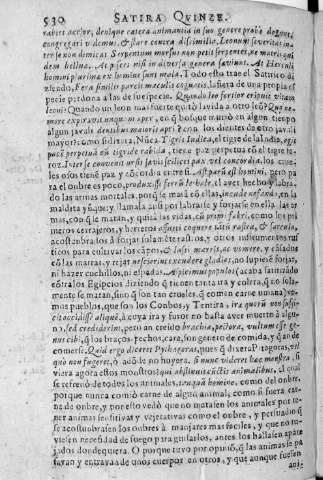 530 SATIRA QVINZE.
rabit aerior, denique catera animantia in suo genere probè degunt,
congregari videmus, & stare contra disimilia. Leonum feritas in-
ter se non dimicat. Serpentum morsus non petit serpentes, ne maris qui-
dem belluæ. At pisces nisi in diversa genera sæviunt. At Hercule
homini plurima ex homine sunt mala. Todo esto trae el Satirico di-
ziendo, Fera similis parcit maculis cognatis, la fiera de una propia es
pecie perdona a las de su especie. Quando leo fortior eripuit vitam
leoni? Quando un leon mas fuerte quitò la vida a otro leõ? Quo ne-
more expiravit unquam aper, en q̃ bosque muriò en algun tiempo
algun javali dentibus maioris apri? con los dientes de otro javali
mayor? como si dixera, Nũca Tigris Indica, el tigre de la India, agit
pacẽ perpetuã cũ tigride rabida, tiene paz perpetua cõ el tigre fe-
roz. Inter se convenit ursis sævis scilicet pax vel concordia, los crue-
les osos tienẽ paz y cõcordia entre si. Ast parũ est homini, pero pa
ra el onbre es poco, produxisse ferrũ lethale, el aver hecho y labra-
do las armas mortales, porq̃ le matã cõ ellas, incude nefanda, en la
maldita yũque, y llamala assi por labrarse y forjarse en ella las ar-
mas, con q̃ le matan, y quitã las vidas, cũ primi fabri, como los pri
meros cerrajeros, y herreros assueti coquere tãtũ rastra, & sarcula,
acostũbrados à forjar solamẽte rastros, y otros instrumentos rus-
ticos para cultivar los cãpos, & lassi marris, ac vomere, y cãsados
cõ las marras, y rejas nescierint excudere gladios, no supiesẽ forjar,
ni hazer cuchillos, ni espadas. Aspicimus populos, acaba satirizãdo
cõtra los Egipcios diziendo q̃ tienen tanta ira y colera, q̃ no sola-
mente se matan, sino q̃ son tan crueles, q̃ comen carne vmana, ve-
mos pueblos, que son los Conbos y Tentira, ira quorũ non suffi-
cit occidisse aliquẽ, à cuya ira y furor no basta aver muerto à algu-
no, sed crediderint, pero an creido brachia, pectora, vultum esse ge-
nus cibi, q̃ los braços, pechos, cara, son genero de comida, y q̃ an de
comerse. Quid ergo diceret Pythagoras, pues q̃ dixera Pitagoras, vel
quò non fugeret, ò adõ de no huyera, si nunc videret hæc monstra, si
viera agora estos monstros? qui abstinuit cũctis animalibus, el cual
se refrenò de todos los animales, tanquã homine, como del onbre,
porque nunca comiò carne de algun animal, como si fuera car-
ne de onbre, y por esto vedò que no matasen los animales, por te-
ner animas sensitivas y vegetativas como el onbre, y persuadiò q̃
se acostunbrasen los onbres à manjares mas faciles, y que no tu-
viesen necesidad de fuego para guisarlos, antes los hallasen apare
jados dondequiera. O porque tuvo por opinion, q̃ las animas pa
savan y entravan de unos cuerpos en otros, y que aunque fuesen
ani-